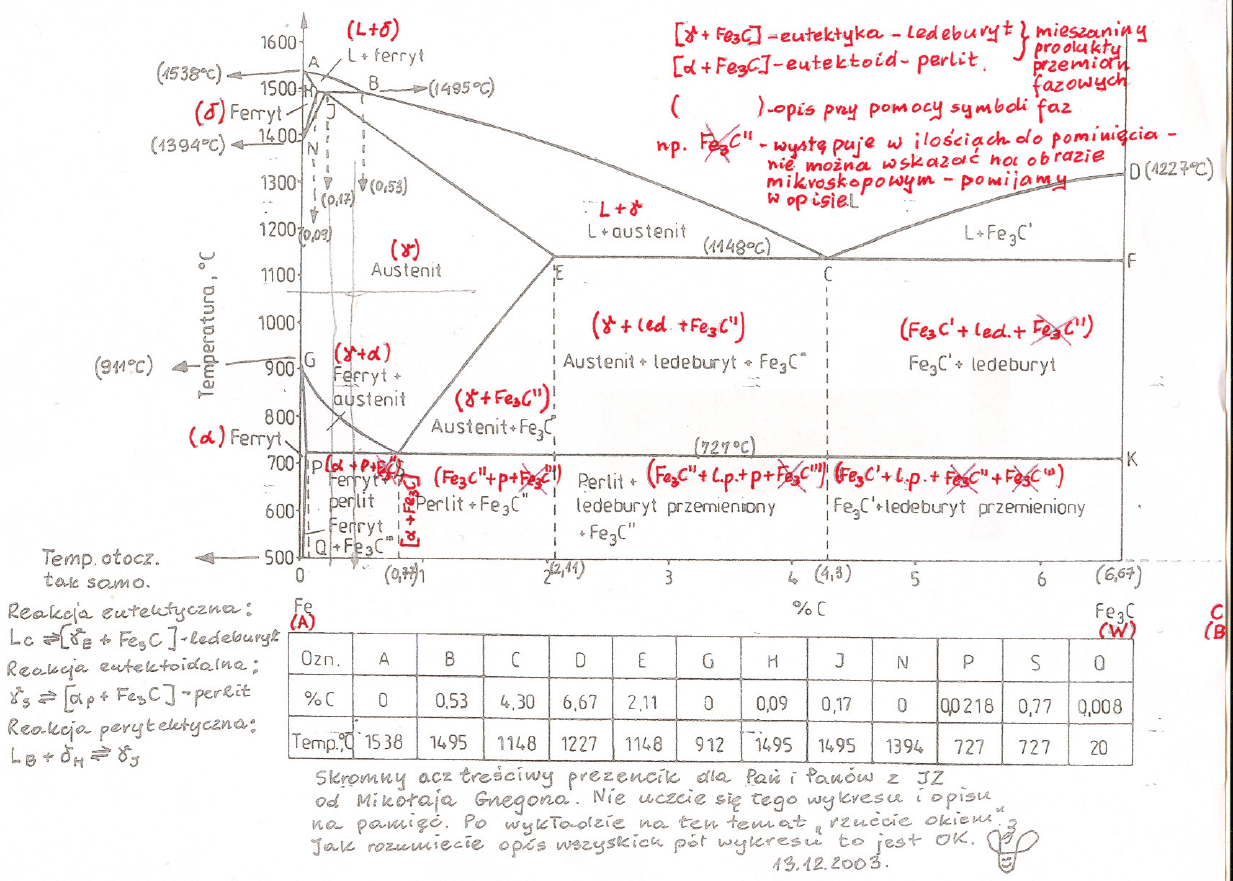 (L+δ)
L+ferryt
[γ+Fe₃C]-eutektyka-ledeburyt } mieszaniny
produkty
[α+Fe₃C]-eutektoid-perlit.
przemian
fazowych
( )-opis przy pomocy symboli faz
np. Fe₃C" - występuje w ilościach do pominięcia -
nie można wskazać na obrazie
mikroskopowym - pomijamy
w opisie
L
1600
A
(1538°C)
1500
H
J
B
(1495°C)
(δ) Ferryt
1400
(1394°C)
N
1300
(0,17)
(0,53)
D (1227°C)
1200
(0,09)
L+γ
L+austenit
(1148°C)
L+Fe₃C'
(γ)
Austenit
1100
E
C
F
Temperatura, °C
1000
(γ+led.+Fe₃C")
(Fe₃C'+led.+Fe₃C")
(911°C)
G
900
(γ+α)
Ferryt+
austenit
Austenit+ledeburyt+Fe₃C"
Fe₃C'+ledeburyt
800
(γ+Fe₃C")
Austenit+Fe₃C
(α) Ferryt
(727°C)
700
P
K
(Fe₃C"+p+Fe₃C''')
(Fe₃C"+l.p.+p+Fe₃C''')
(Fe₃C'+l.p.+Fe₃C"+Fe₃C''')
Ferryt+
perlit
[α+Fe₃C]
Perlit+Fe₃C"
Perlit+
ledeburyt przemieniony
+Fe₃C"
Fe₃C'+ledeburyt przemieniony
600
Ferryt
Q +Fe₃C'''
500
Temp. otocz.
tak samo.
0 (0,77) 1 2 (2,11) 3 4 (4,3) 5 6 (6,67)
Fe %C Fe₃C C
(A) (W) (B
Reakcja eutektyczna:
L_C ⇌ [γ_E + Fe₃C]-ledeburyt
Reakcja eutektoidalna:
γ_S ⇌ [α_P + Fe₃C]-perlit
Reakcja perytektyczna:
L_B + δ_H ⇌ γ_J
Ozn. A B C D E G H J N P S Q
%C 0 0,53 4,30 6,67 2,11 0 0,09 0,17 0 0,0218 0,77 0,008
Temp.°C 1538 1495 1148 1227 1148 912 1495 1495 1394 727 727 20
Skromny acz treściwy prezencik dla Pań i Panów z JZ
od Mikołaja Gnegona. Nie uczcie się tego wykresu i opisu
na pamięć. Po wykładzie na ten temat „rzućcie okiem".
Jak rozumiecie opis wszyskich pól wykresu to jest OK.
13.12.2003.